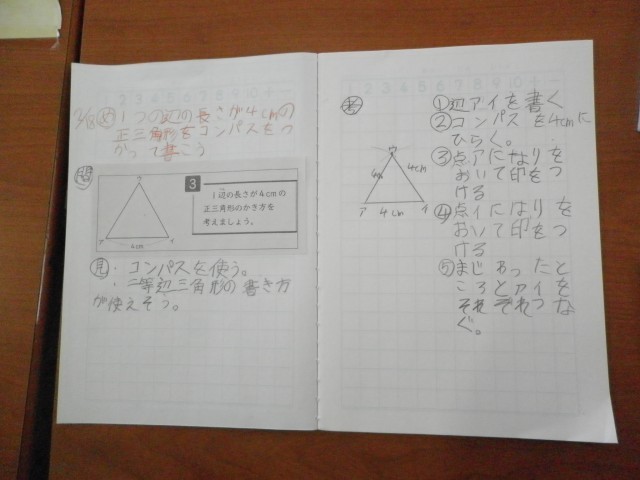 2/18 め 1つの辺の長さが4cmの
正三角形をコンパスをつ
かって書こう
問
3
1辺の長さが4cmの
正三角形のかき方を
考えましょう。
ウ
ア
イ
4cm
見・コンパスを使う。
・二等辺三角形の書き方
が使えそう。
考
ウ
4cm
4cm
ア
4cm
イ
①辺アイを書く
②コンパスを4cmに
ひらく。
③点アにはりを
おいて印をつ
ける
④点イにはりを
おいて印をつ
ける
⑤まじわったと
ころとアイを
それぞれつな
ぐ。